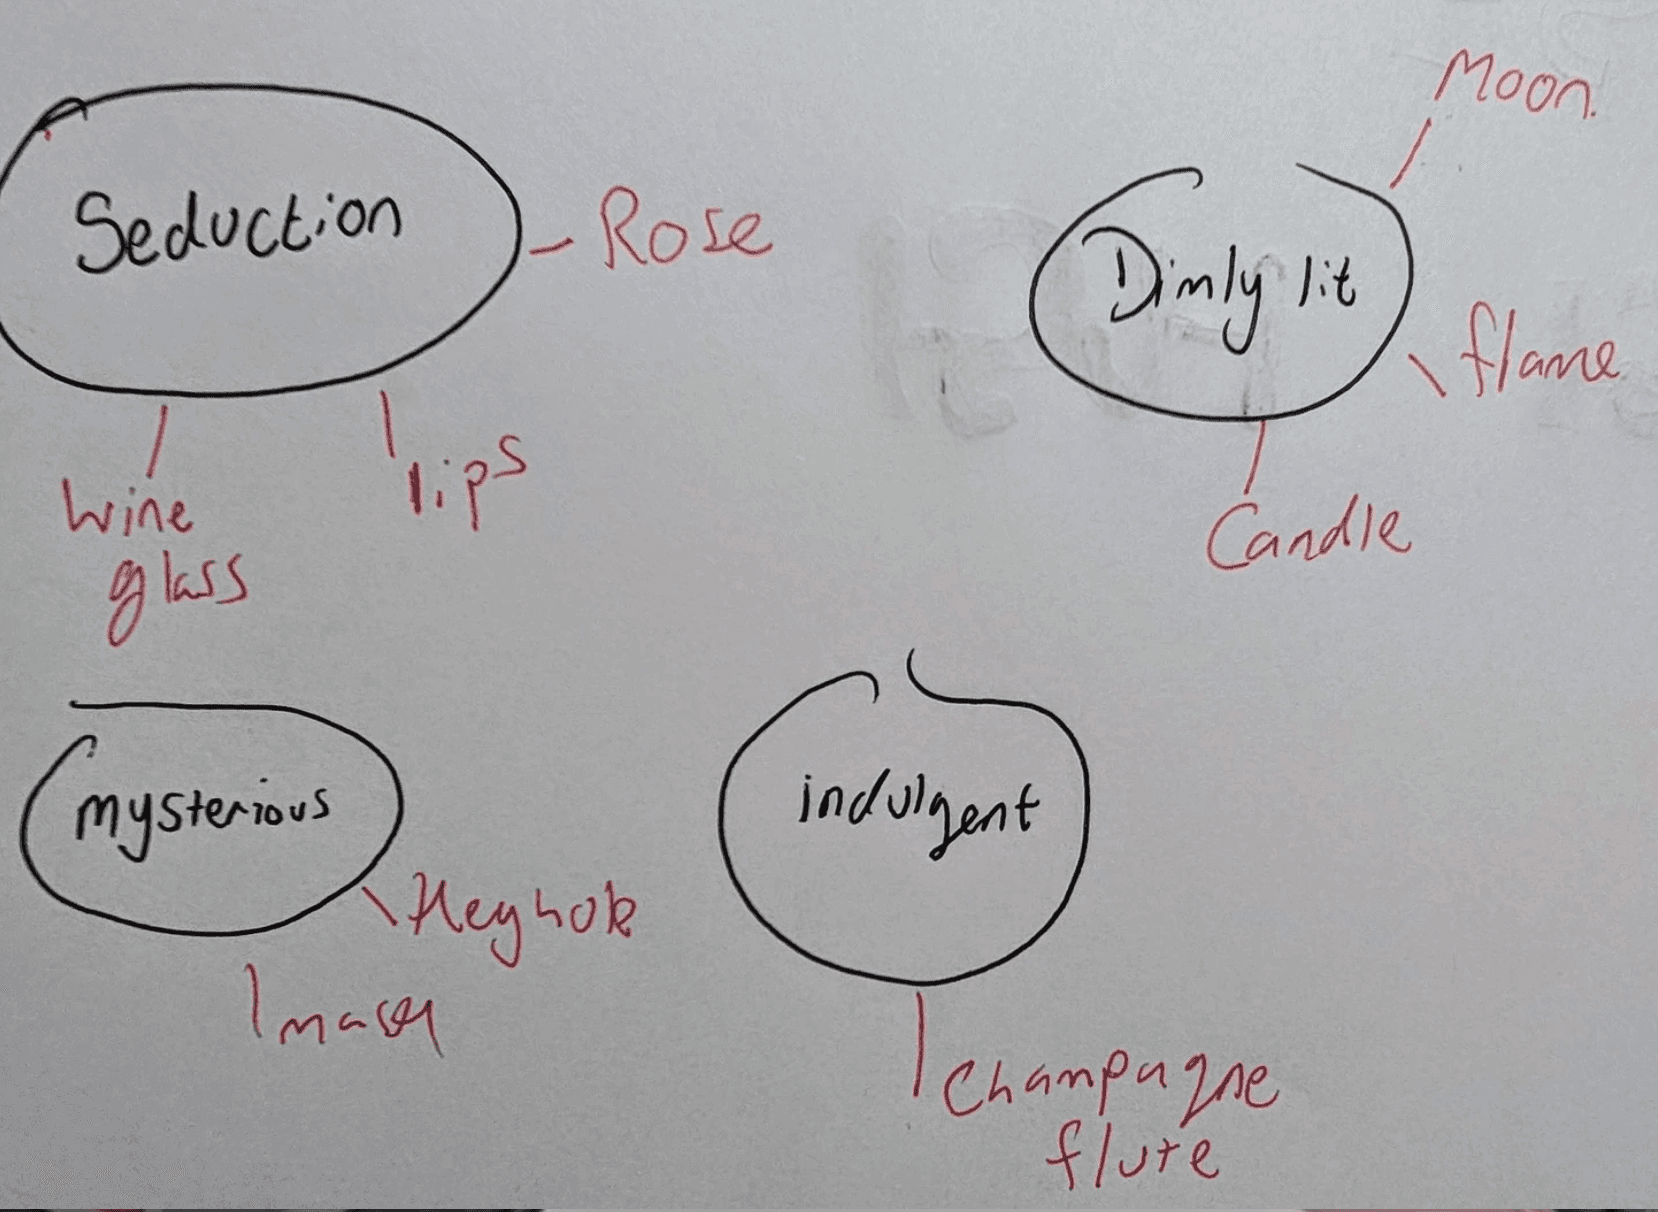 Moon.
Seduction
Rose
Dimly lit
flame
lips
wine
glass
Candle
mysterious
indulgent
Keyhole
mask
Champagne
flute